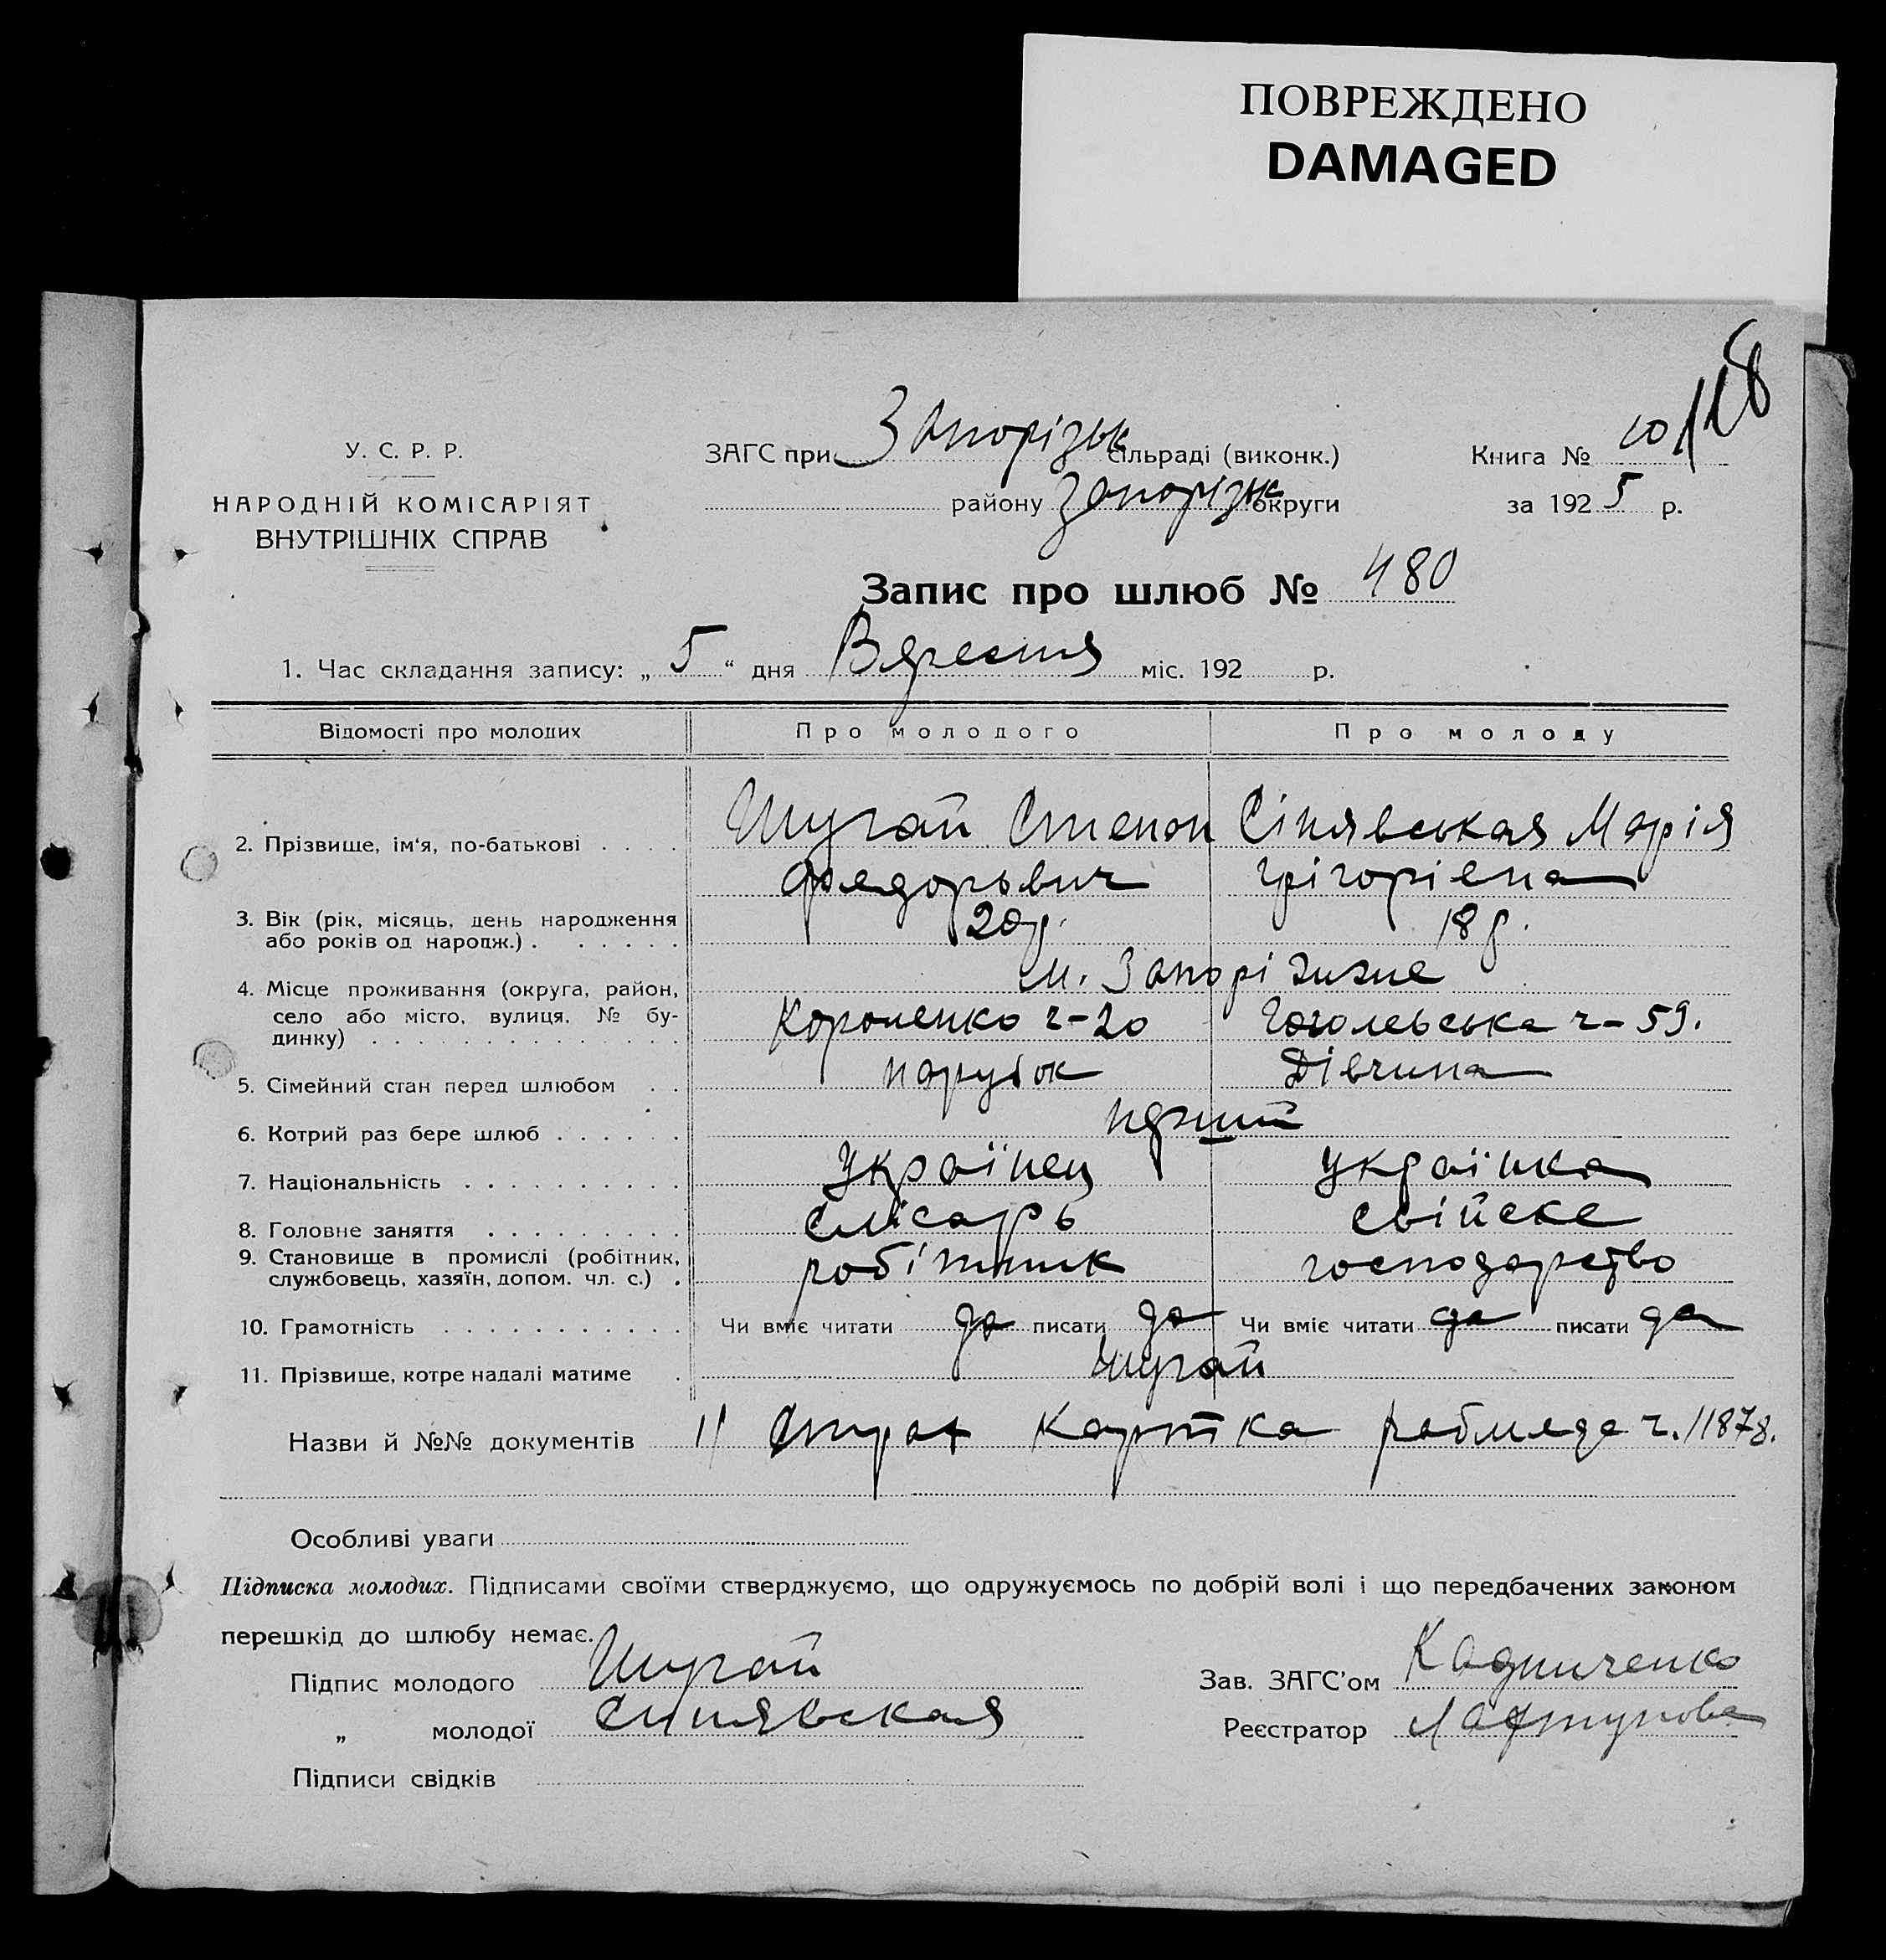 ПОВРЕЖДЕНО
DAMAGED
У. С. Р. Р.
НАРОДНІЙ КОМІСАРІЯТ
ВНУТРІШНІХ СПРАВ
ЗАГС при Запорізьк сільраді (виконк.)
району Запорізьк округи
Книга № 10/118
за 1925 р.
Запис про шлюб № 480
1. Час складання запису: „5“ дня Вересня міс. 192 р.
Відомості про молодих Про молодого Про молоду
2. Прізвище, ім'я, по-батькові Шугай Степан Сінявськая Марія
Федорович Грігорієна
3. Вік (рік, місяць, день народження 20р. 18р.
або років од народж.)
м. Запоріжжє
4. Місце проживання (округа, район,
село або місто, вулиця, № бу- Короленко ч-20 Гоголевська ч-59.
динку)
5. Сімейний стан перед шлюбом парубок Дівчина
6. Котрий раз бере шлюб перший
7. Національність Українец Українка
8. Головне заняття слісарь свійске
9. Становище в промислі (робітник, робітник господарство
службовець, хазяїн, допом. чл. с.)
10. Грамотність Чи вміє читати да писати да Чи вміє читати да писати да
11. Прізвище, котре надалі матиме Шугай
Назви й №№ документів 1) Страх картка ч. 11878.
Особливі уваги
Підписка молодих. Підписами своїми стверджуємо, що одружуємось по добрій волі і що передбачених законом
перешкід до шлюбу немає.
Підпис молодого Шугай
„ молодої Синявская
Підписи свідків
Зав. ЗАГС'ом
Реєстратор